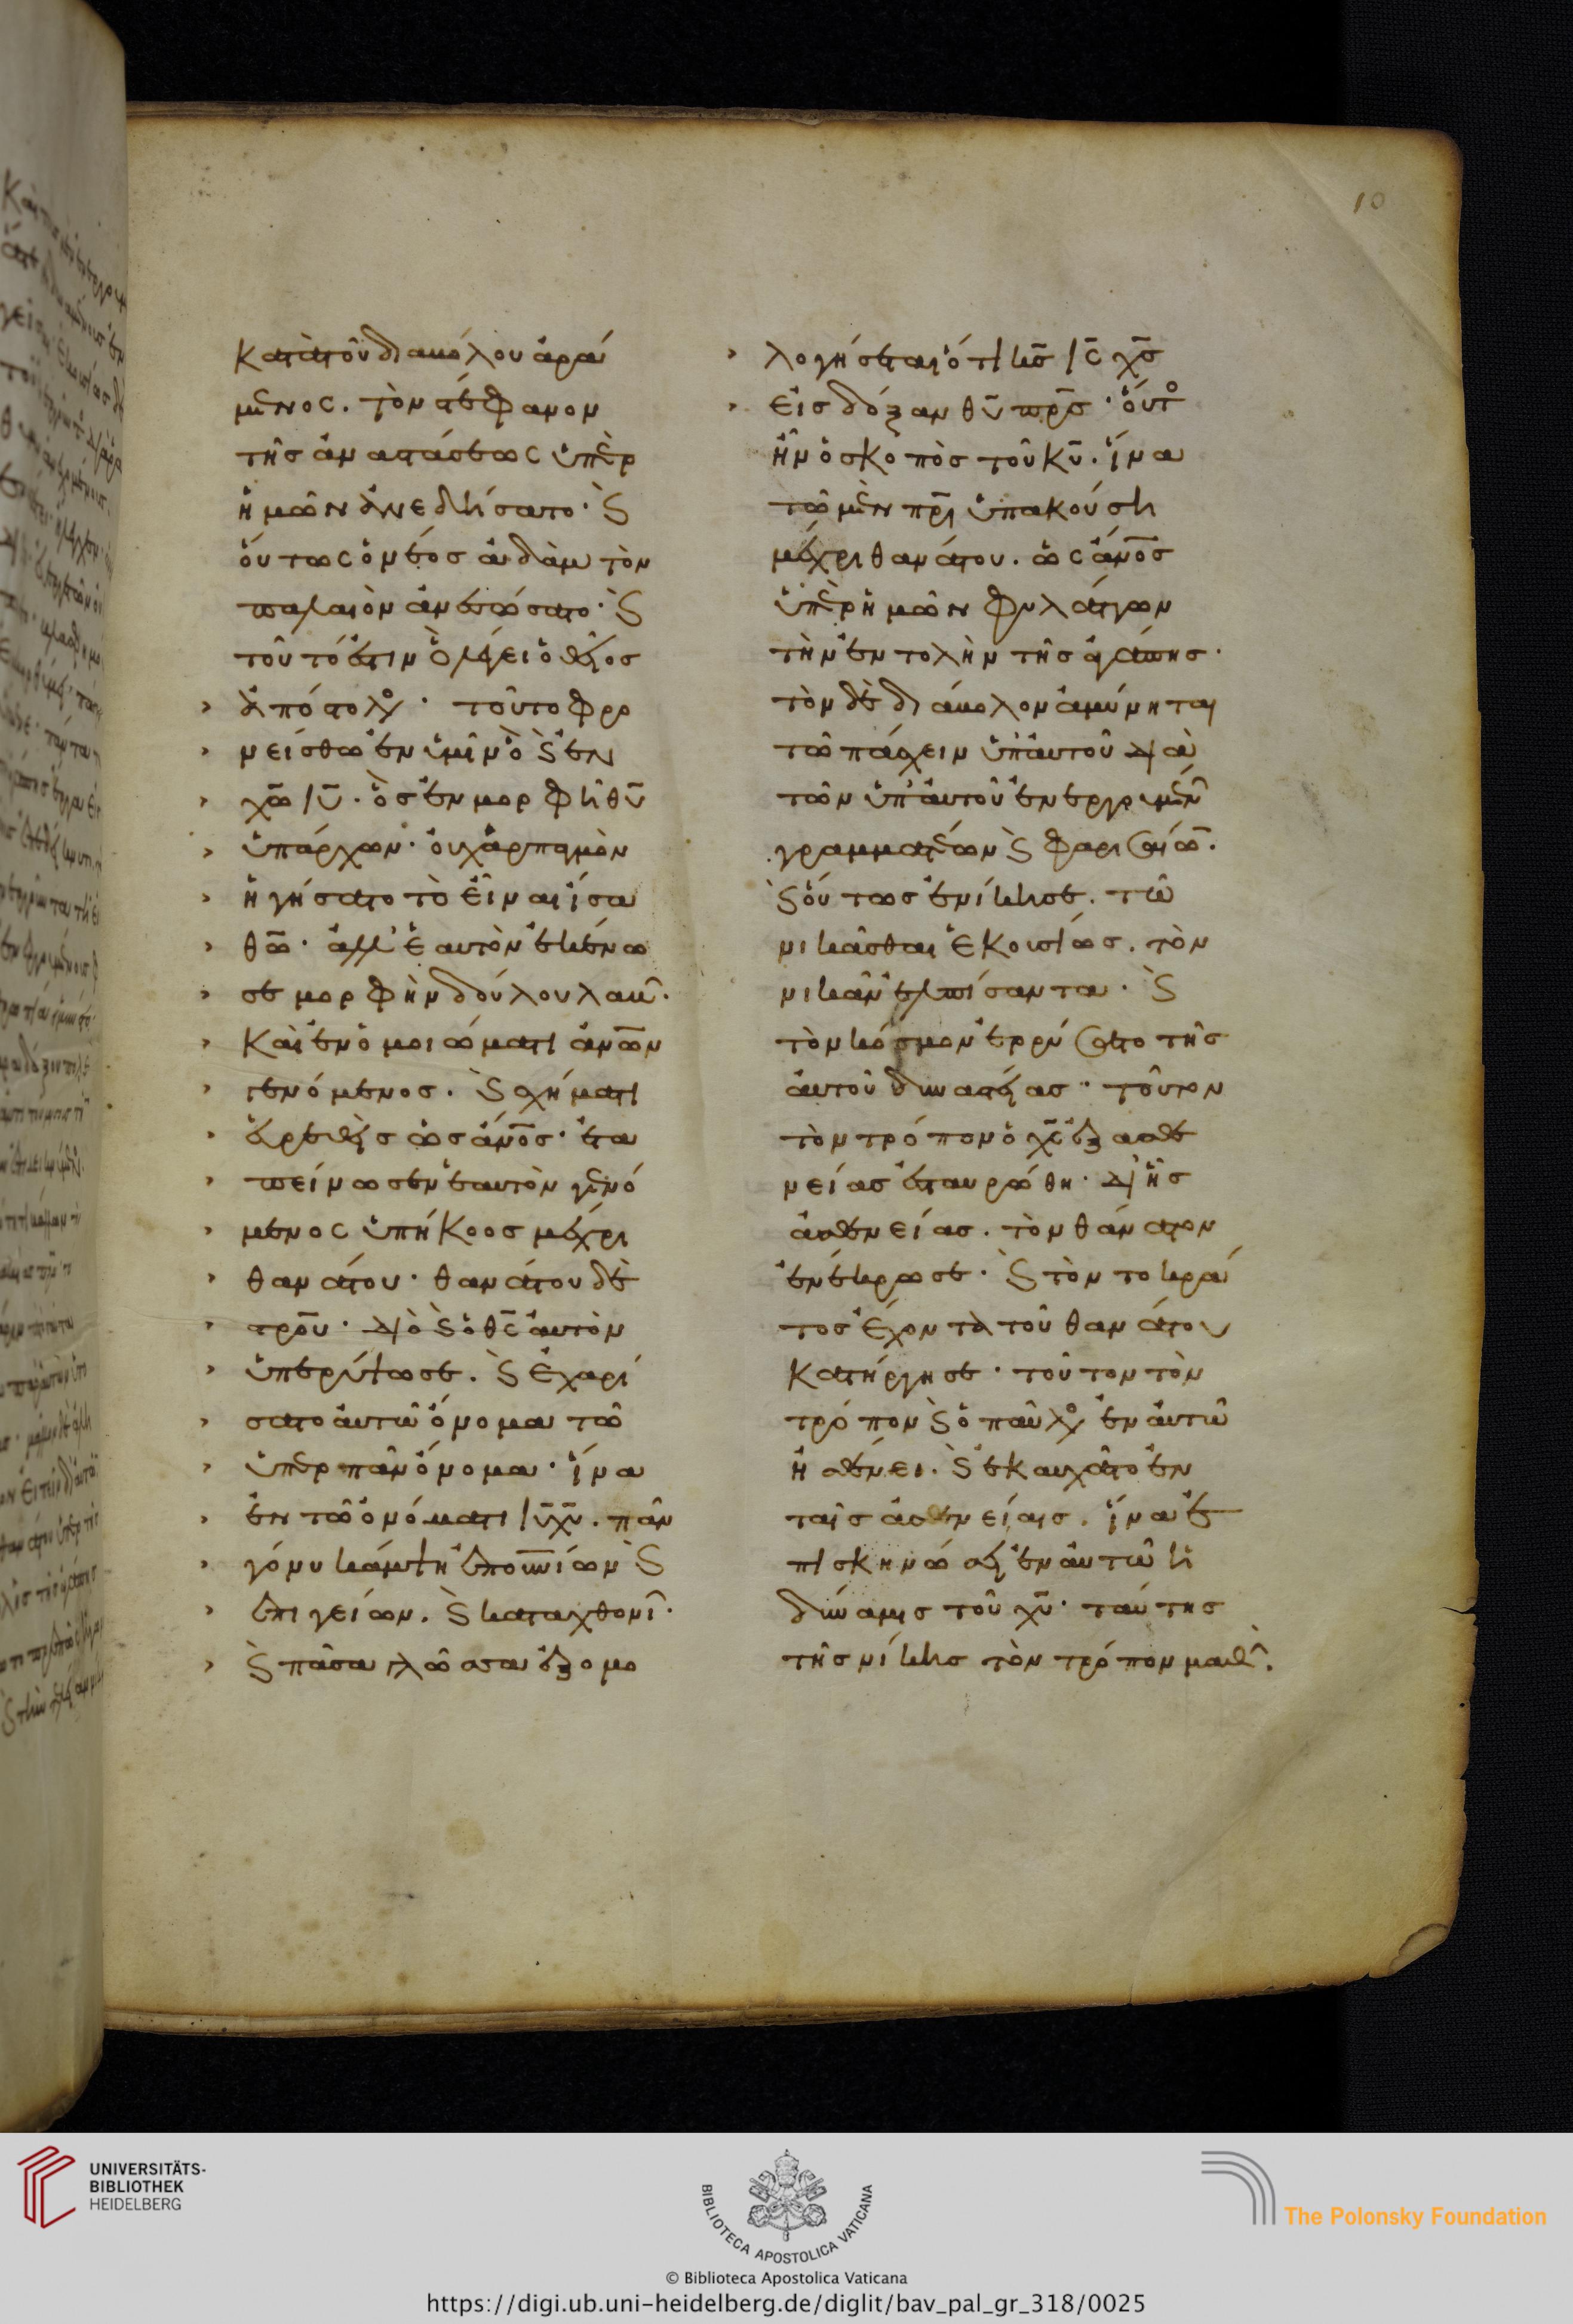 10
κατὰ τοῦ διαβόλου ἀρά
μενος. τὸν στέφανον
τῆς ἀναστάσεως ὑπὲρ
ἡμῶν ἀνεδήσατο· ϗ
οὕτως ὁ νέος ἀδὰμ τὸν
παλαιὸν ἀνεσώσατο· ϗ
τοῦτό ἐστιν ὃ λέγει ὁ θεῖος
› ἀπόστολο· τοῦτο φρο
› νείσθω ἐν ὑμῖν ὃ ϗ ἐν
› χω̅ ιυ̅. ὃς ἐν μορφῇ θυ̅
› ὑπάρχων· οὐχ ἁρπαγμὸν
› ἡγήσατο τὸ εἶναι ἴσα
› θω̅· ἀλλ' ἑαυτὸν ἐκένω
› σε μορφὴν δούλου λαβ·
› καὶ ἐν ὁμοιώματι ἀνω̅ν
› γενόμενος. ϗ σχήματι
› εὑρεθεὶς ὡς ἀνο̅ς· ἐτα
› πείνωσεν ἑαυτὸν γενό
› μενος ὑπήκοος μέχρι
› θανάτου· θανάτου δὲ
› στρο̅υ· διὸ ϗ ὁ θς̅ αὐτὸν
› ὑπερύψωσε. ϗ ἐχαρί
› σατο αὐτῶ ὄνομα τὸ
› ὑπὲρ πᾶν ὄνομα· ἵνα
› ἐν τῶ ὀνόματι ιυ̅ χυ̅. πᾶν
› γόνυ κάμψη ἐπουνίων ϗ
› ἐπιγείων. ϗ καταχθονι·
› ϗ πᾶσα γλῶσσα ἐξομο
› λογήσεται ὅτι κς̅ ις̅ χς̅
› εἰς δόξαν θυ̅ πρς̅· οὗτο
ἦν ὁ σκοπὸς τοῦ κυ̅. ἵνα
τῶ μὲν πρι̅ ὑπακούση
μέχρι θανάτου. ὡς ἀνο̅ς
ὑπὲρ ἡμῶν φυλάττων
τὴν ἐντολὴν τῆς ἀγάπης·
τὸν δὲ διάβολον ἀμύνηται
τῶ πάσχειν ὑπ' αὐτοῦ διὰ
τῶν ὑπ' αὐτοῦ ἐνεργουμέν
γραμματέων ϗ φαρισαίω̅.
ϗ οὕτως ἐνίκησε. τῶ
νικᾶσθαι ἑκουσίως. τὸν
νικᾶν ἐλπίσαντα· ϗ
τὸν κόσμον ἐρρύσατο τῆς
αὐτοῦ δυναστείας· τοῦτον
τὸν τρόπον ὁ χς̅ ἐξ ἀσθε
νείας ἐσταυρώθη· δι' ἧς
ἀσθενείας. τὸν θάνατον
ἐνέκρωσε· ϗ τὸν τὸ κρά
τος ἔχοντα τοῦ θανάτου
κατήργησε· τοῦτον τὸν
τρόπον ϗ ὁ παῦλο ἐν αὐτῶ
ἠσθένει. ϗ ἐκαυχᾶτο ἐν
ταῖς ἀσθενείαις. ἵνα ἐ
πισκηνώσει ἐν αὐτῶ ἡ
δύναμις τοῦ χυ̅· ταύτης
τῆς νίκης τὸν τρόπον μαθ.
UNIVERSITÄTS-
BIBLIOTHEK
HEIDELBERG
BIBLIOTECA APOSTOLICA VATICANA
The Polonsky Foundation
© Biblioteca Apostolica Vaticana
https://digi.ub.uni-heidelberg.de/diglit/bav_pal_gr_318/0025